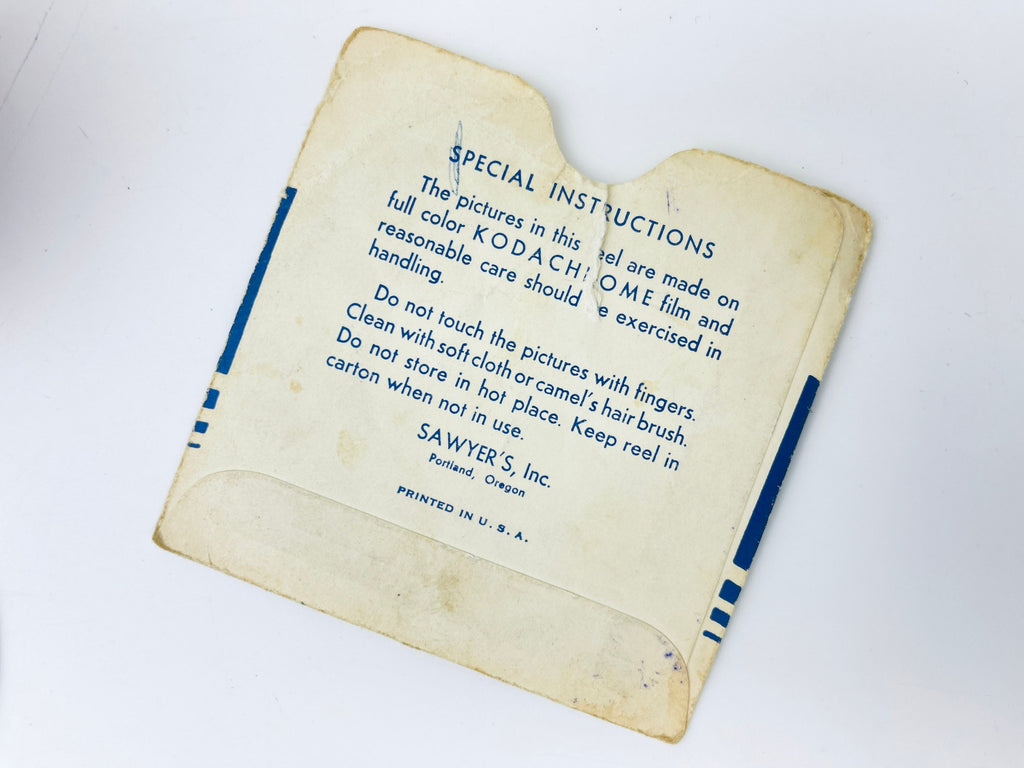 SPECIAL INSTRUCTIONS
The pictures in this eel are made on
full color KODACHROME film and
reasonable care should e exercised in
handling.
Do not touch the pictures with fingers.
Clean with soft cloth or camel's hair brush.
Do not store in hot place. Keep reel in
carton when not in use.
SAWYER'S, Inc.
Portland, Oregon
PRINTED IN U.S.A.